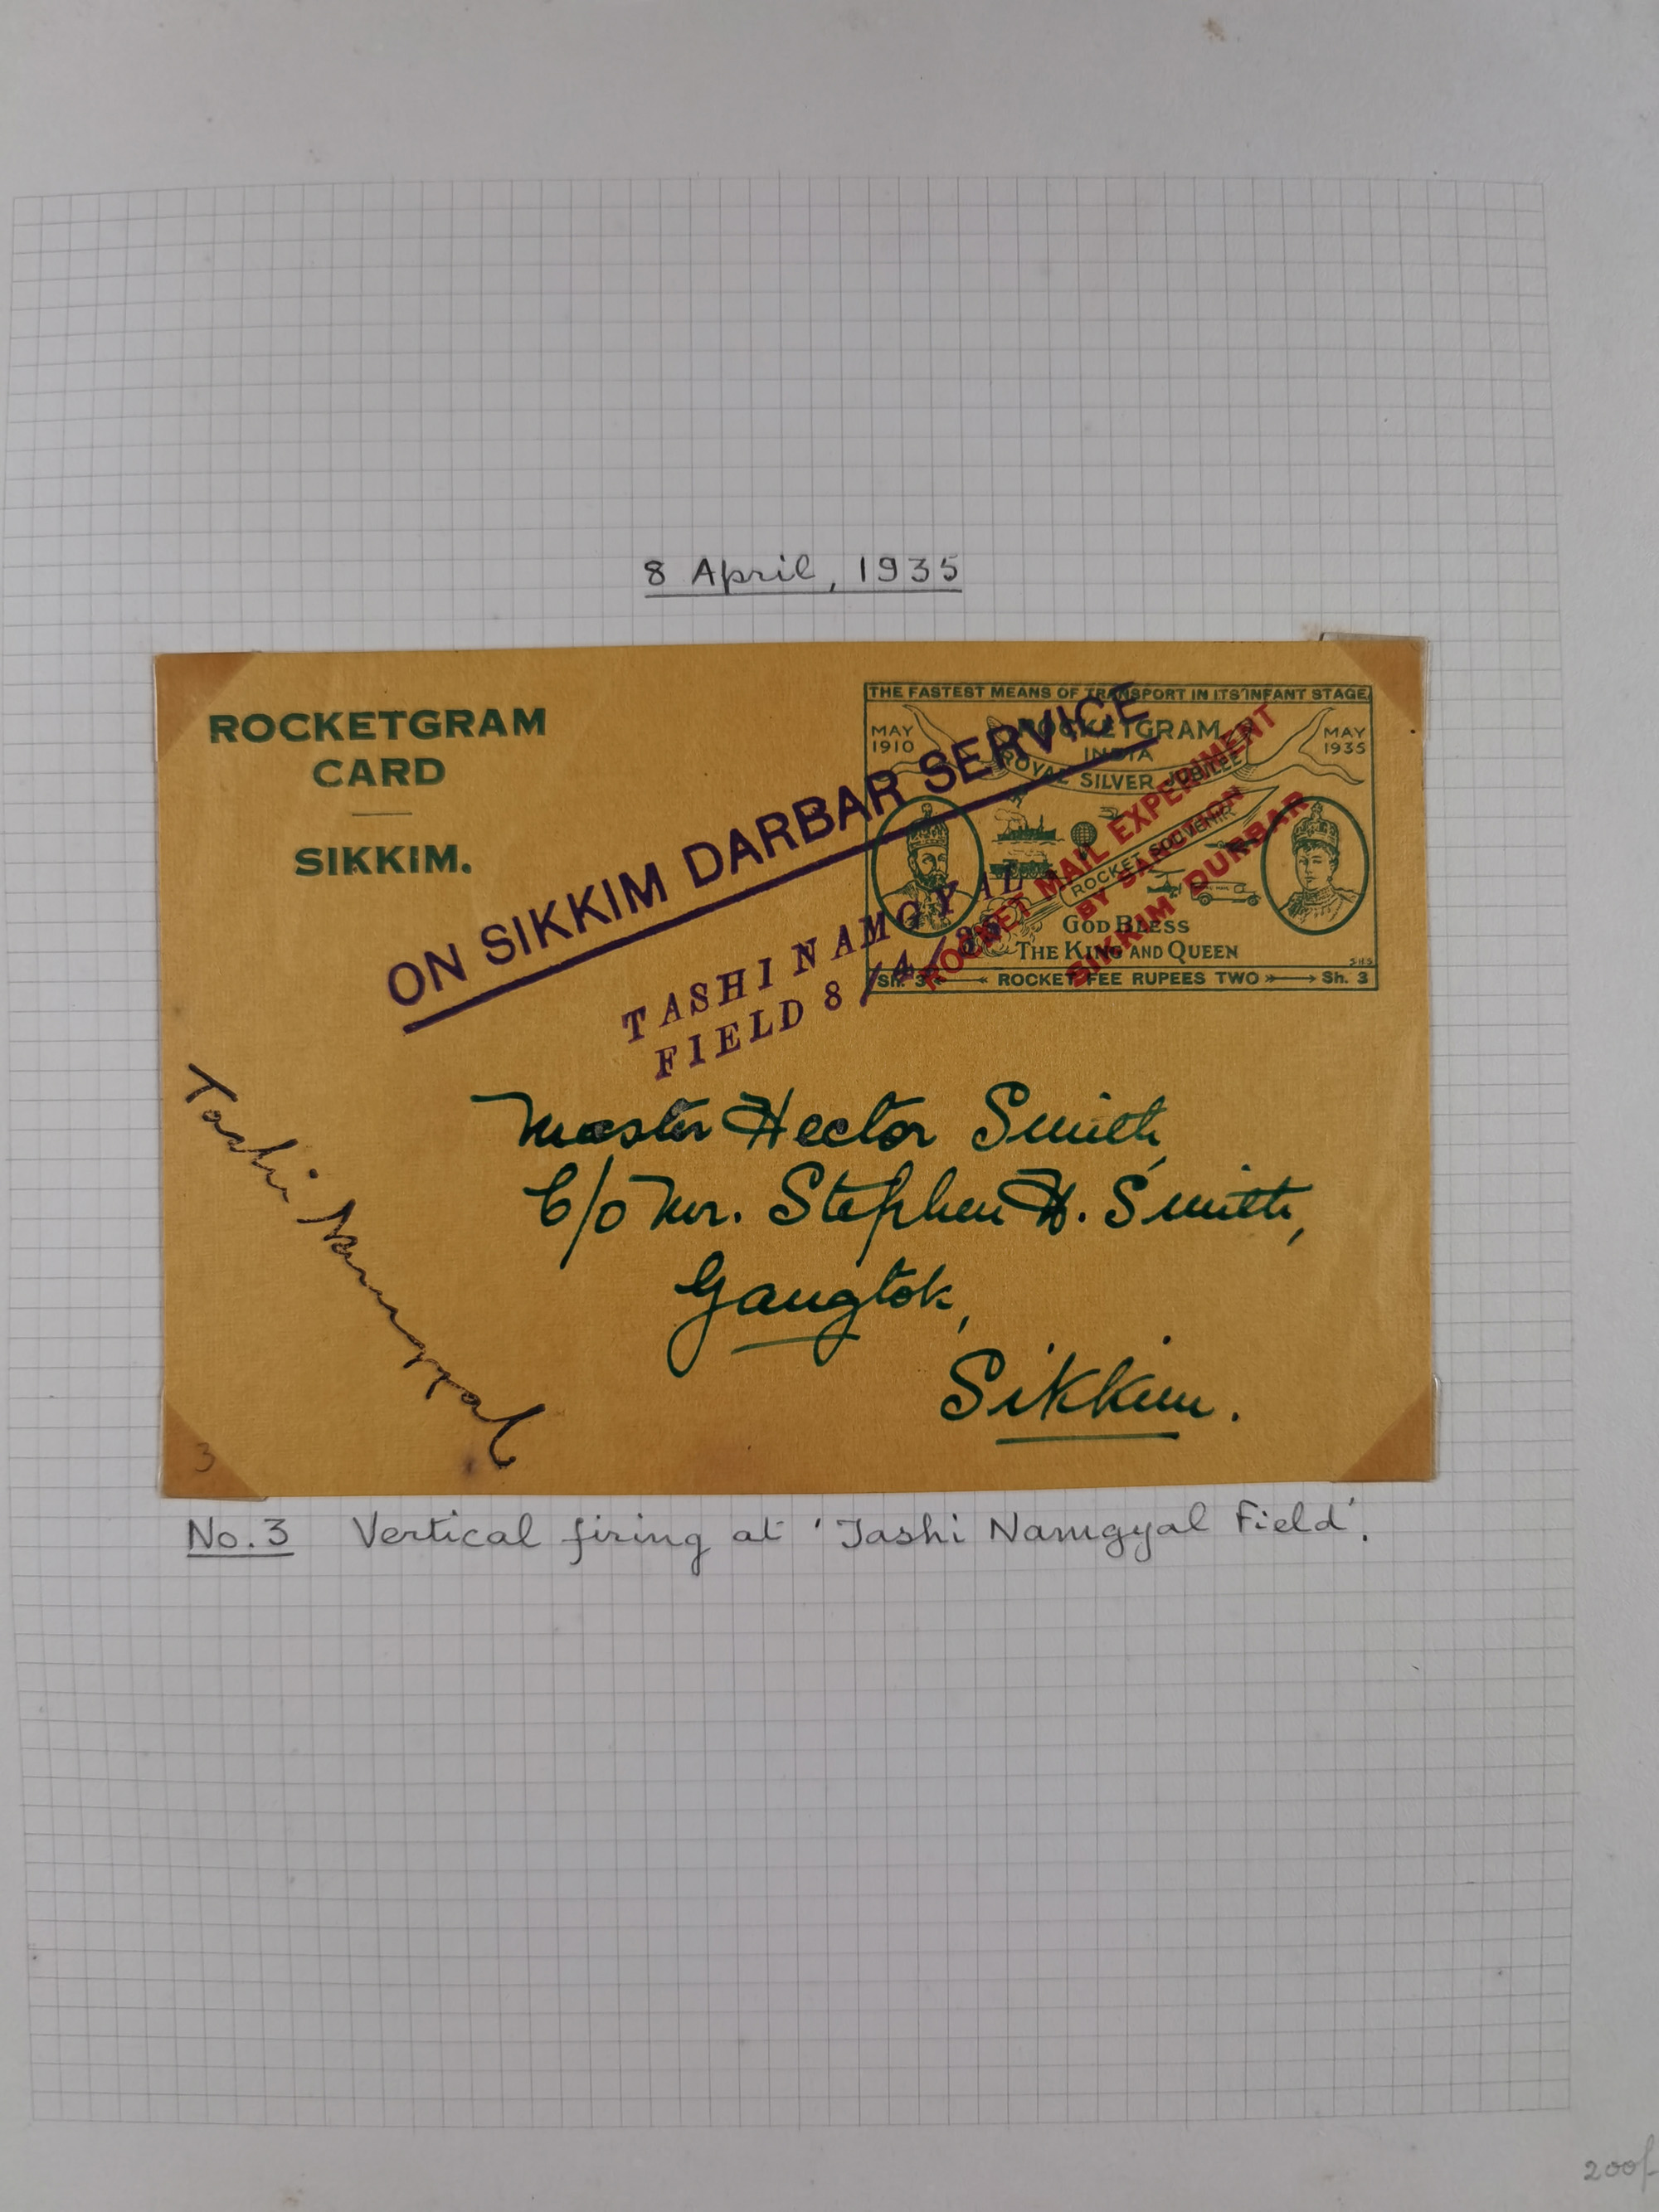 8 April, 1935
ROCKETGRAM
CARD
SIKKIM.
THE FASTEST MEANS OF TRANSPORT IN ITS INFANT STAGE
MAY
1910
ROCKETGRAM
INDIA
ROYAL SILVER JUBILEE
MAY
1935
ROCKET SOUVENIR
GOD BLESS
THE KING AND QUEEN
SHS
Sh. 3 ROCKET FEE RUPEES TWO Sh. 3
ROCKET MAIL EXPERIMENT
BY SANCTION
SIKKIM DURBAR
ON SIKKIM DARBAR SERVICE
TASHI NAMGYAL
FIELD 8/4/35
Master Hector Smith,
C/o Mr. Stephen H. Smith,
Gangtok,
Sikkim.
Tashi Namgyal
3
No. 3 Vertical firing at 'Tashi Namgyal Field'.
200/-